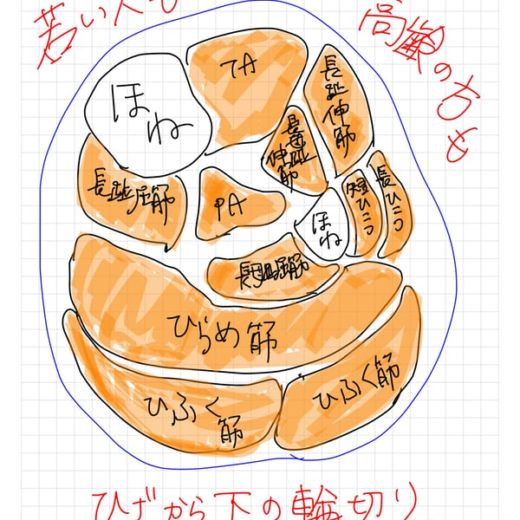 若い人も
高齢の方も
TA
ほね
長趾伸筋
長母趾伸筋
長趾屈筋
PA
ほね
短ひこつ
長ひこつ
長母趾屈筋
ひらめ筋
ひふく筋
ひふく筋
ひざから下の輪切り